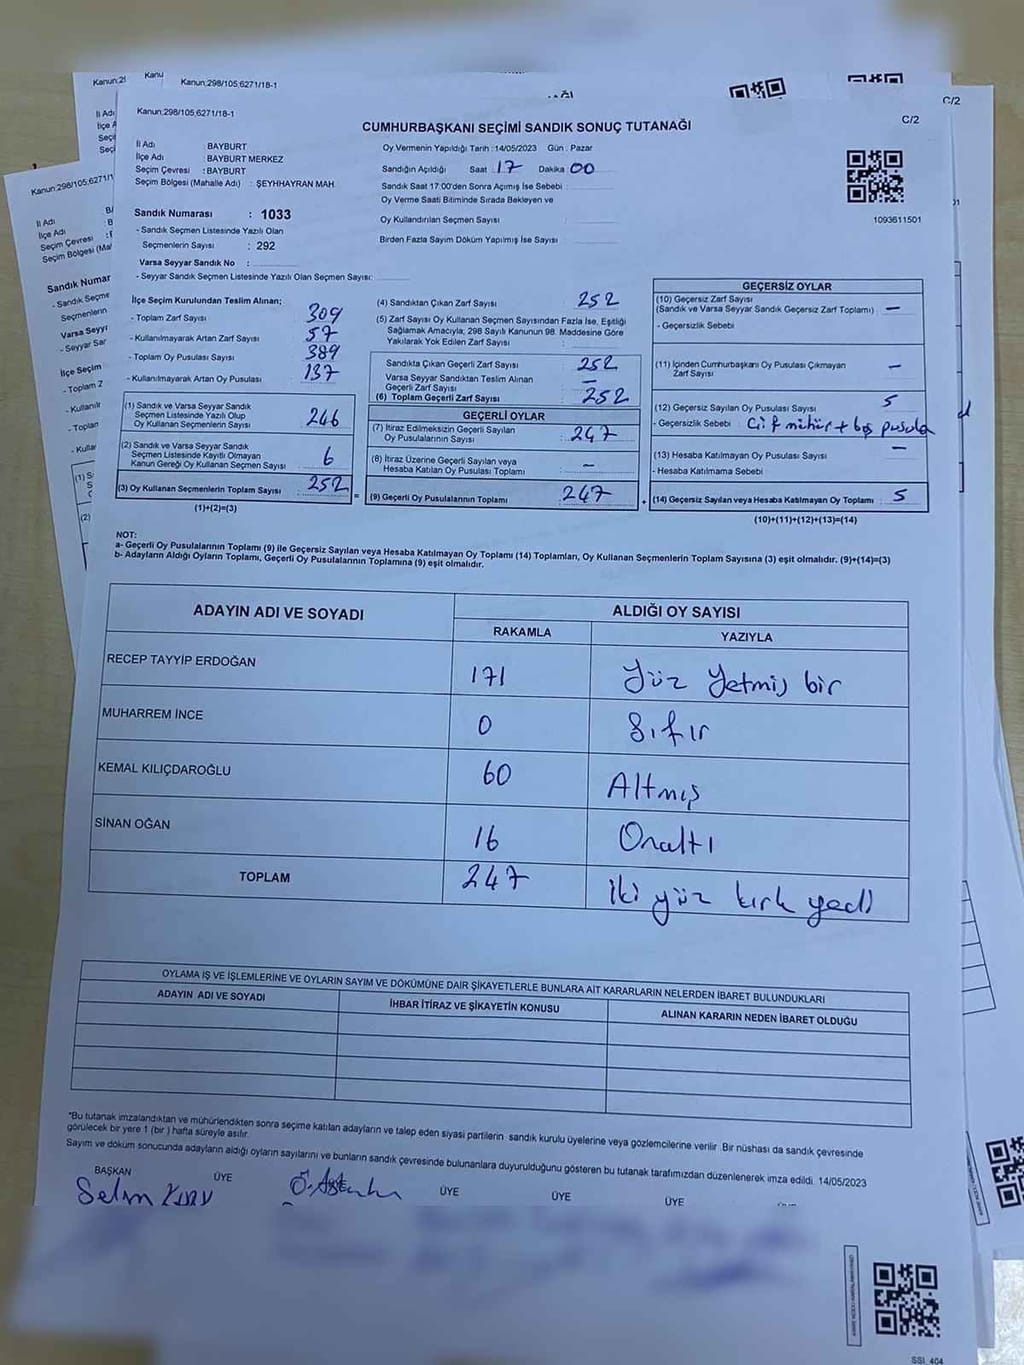 Kanun:298/105;6271/18-1
C/2
CUMHURBAŞKANI SEÇİMİ SANDIK SONUÇ TUTANAĞI
1093611501
İl Adı : BAYBURT
İlçe Adı : BAYBURT MERKEZ
Seçim Çevresi : BAYBURT
Seçim Bölgesi (Mahalle Adı) : ŞEYHHAYRAN MAH.
Sandık Numarası : 1033
- Sandık Seçmen Listesinde Yazılı Olan
Seçmenlerin Sayısı : 292
Varsa Seyyar Sandık No :
- Seyyar Sandık Seçmen Listesinde Yazılı Olan Seçmen Sayısı:
Oy Vermenin Yapıldığı Tarih :14/05/2023 Gün : Pazar
Sandığın Açıldığı Saat 17 Dakika 00
Sandık Saat 17.00'den Sonra Açılmış İse Sebebi :
Oy Verme Saati Bitiminde Sırada Bekleyen ve
Oy Kullandırılan Seçmen Sayısı :
Birden Fazla Sayım Döküm Yapılmış İse Sayısı :
İlçe Seçim Kurulundan Teslim Alınan;
- Toplam Zarf Sayısı : 309
- Kullanılmayarak Artan Zarf Sayısı : 57
- Toplam Oy Pusulası Sayısı : 389
- Kullanılmayarak Artan Oy Pusulası : 137
(1) Sandık ve Varsa Seyyar Sandık
Seçmen Listesinde Yazılı Olup
Oy Kullanan Seçmenlerin Sayısı : 246
(2) Sandık ve Varsa Seyyar Sandık
Seçmen Listesinde Kayıtlı Olmayan
Kanun Gereği Oy Kullanan Seçmen Sayısı : 6
(3) Oy Kullanan Seçmenlerin Toplam Sayısı : 252
(1)+(2)=(3)
(4) Sandıktan Çıkan Zarf Sayısı : 252
(5) Zarf Sayısı Oy Kullanan Seçmen Sayısından Fazla İse, Eşitliği
Sağlamak Amacıyla, 298 Sayılı Kanunun 98. Maddesine Göre
Yakılarak Yok Edilen Zarf Sayısı :
Sandıkta Çıkan Geçerli Zarf Sayısı : 252
Varsa Seyyar Sandıktan Teslim Alınan
Geçerli Zarf Sayısı : —
(6) Toplam Geçerli Zarf Sayısı : 252
GEÇERLİ OYLAR
(7) İtiraz Edilmeksizin Geçerli Sayılan
Oy Pusulalarının Sayısı : 247
(8) İtiraz Üzerine Geçerli Sayılan veya
Hesaba Katılan Oy Pusulası Toplamı : —
(9) Geçerli Oy Pusulalarının Toplamı : 247
GEÇERSİZ OYLAR
(10) Geçersiz Zarf Sayısı
(Sandık ve Varsa Seyyar Sandık Geçersiz Zarf Toplamı) : —
- Geçersizlik Sebebi
(11) İçinden Cumhurbaşkanı Oy Pusulası Çıkmayan
Zarf Sayısı : —
(12) Geçersiz Sayılan Oy Pusulası Sayısı : 5
- Geçersizlik Sebebi : Çift mühür + boş pusula
(13) Hesaba Katılmayan Oy Pusulası Sayısı : —
- Hesaba Katılmama Sebebi
(14) Geçersiz Sayılan veya Hesaba Katılmayan Oy Toplamı : 5
(10)+(11)+(12)+(13)=(14)
NOT:
a- Geçerli Oy Pusulalarının Toplamı (9) ile Geçersiz Sayılan veya Hesaba Katılmayan Oy Toplamı (14) Toplamları, Oy Kullanan Seçmenlerin Toplam Sayısına (3) eşit olmalıdır. (9)+(14)=(3)
b- Adayların Aldığı Oyların Toplamı, Geçerli Oy Pusulalarının Toplamına (9) eşit olmalıdır.
ADAYIN ADI VE SOYADI
ALDIĞI OY SAYISI
RAKAMLA YAZIYLA
RECEP TAYYİP ERDOĞAN 171 Yüz Yetmiş bir
MUHARREM İNCE 0 Sıfır
KEMAL KILIÇDAROĞLU 60 Altmış
SİNAN OĞAN 16 Onaltı
TOPLAM 247 İki yüz kırk yedi
OYLAMA İŞ VE İŞLEMLERİNE VE OYLARIN SAYIM VE DÖKÜMÜNE DAİR ŞİKAYETLERLE BUNLARA AİT KARARLARIN NELERDEN İBARET BULUNDUKLARI
ADAYIN ADI VE SOYADI İHBAR İTİRAZ VE ŞİKAYETİN KONUSU ALINAN KARARIN NEDEN İBARET OLDUĞU
*Bu tutanak imzalandıktan ve mühürlendikten sonra seçime katılan adayların ve talep eden siyasi partilerin sandık kurulu üyelerine veya gözlemcilerine verilir. Bir nüshası da sandık çevresinde
görülecek bir yere 1 (bir ) hafta süreyle asılır.
Sayım ve döküm sonucunda adayların aldığı oyların sayılarını ve bunların sandık çevresinde bulunanlara duyurulduğunu gösteren bu tutanak tarafımızdan düzenlenerek imza edildi. 14/05/2023
BAŞKAN ÜYE ÜYE ÜYE ÜYE
Selim
SSI_404